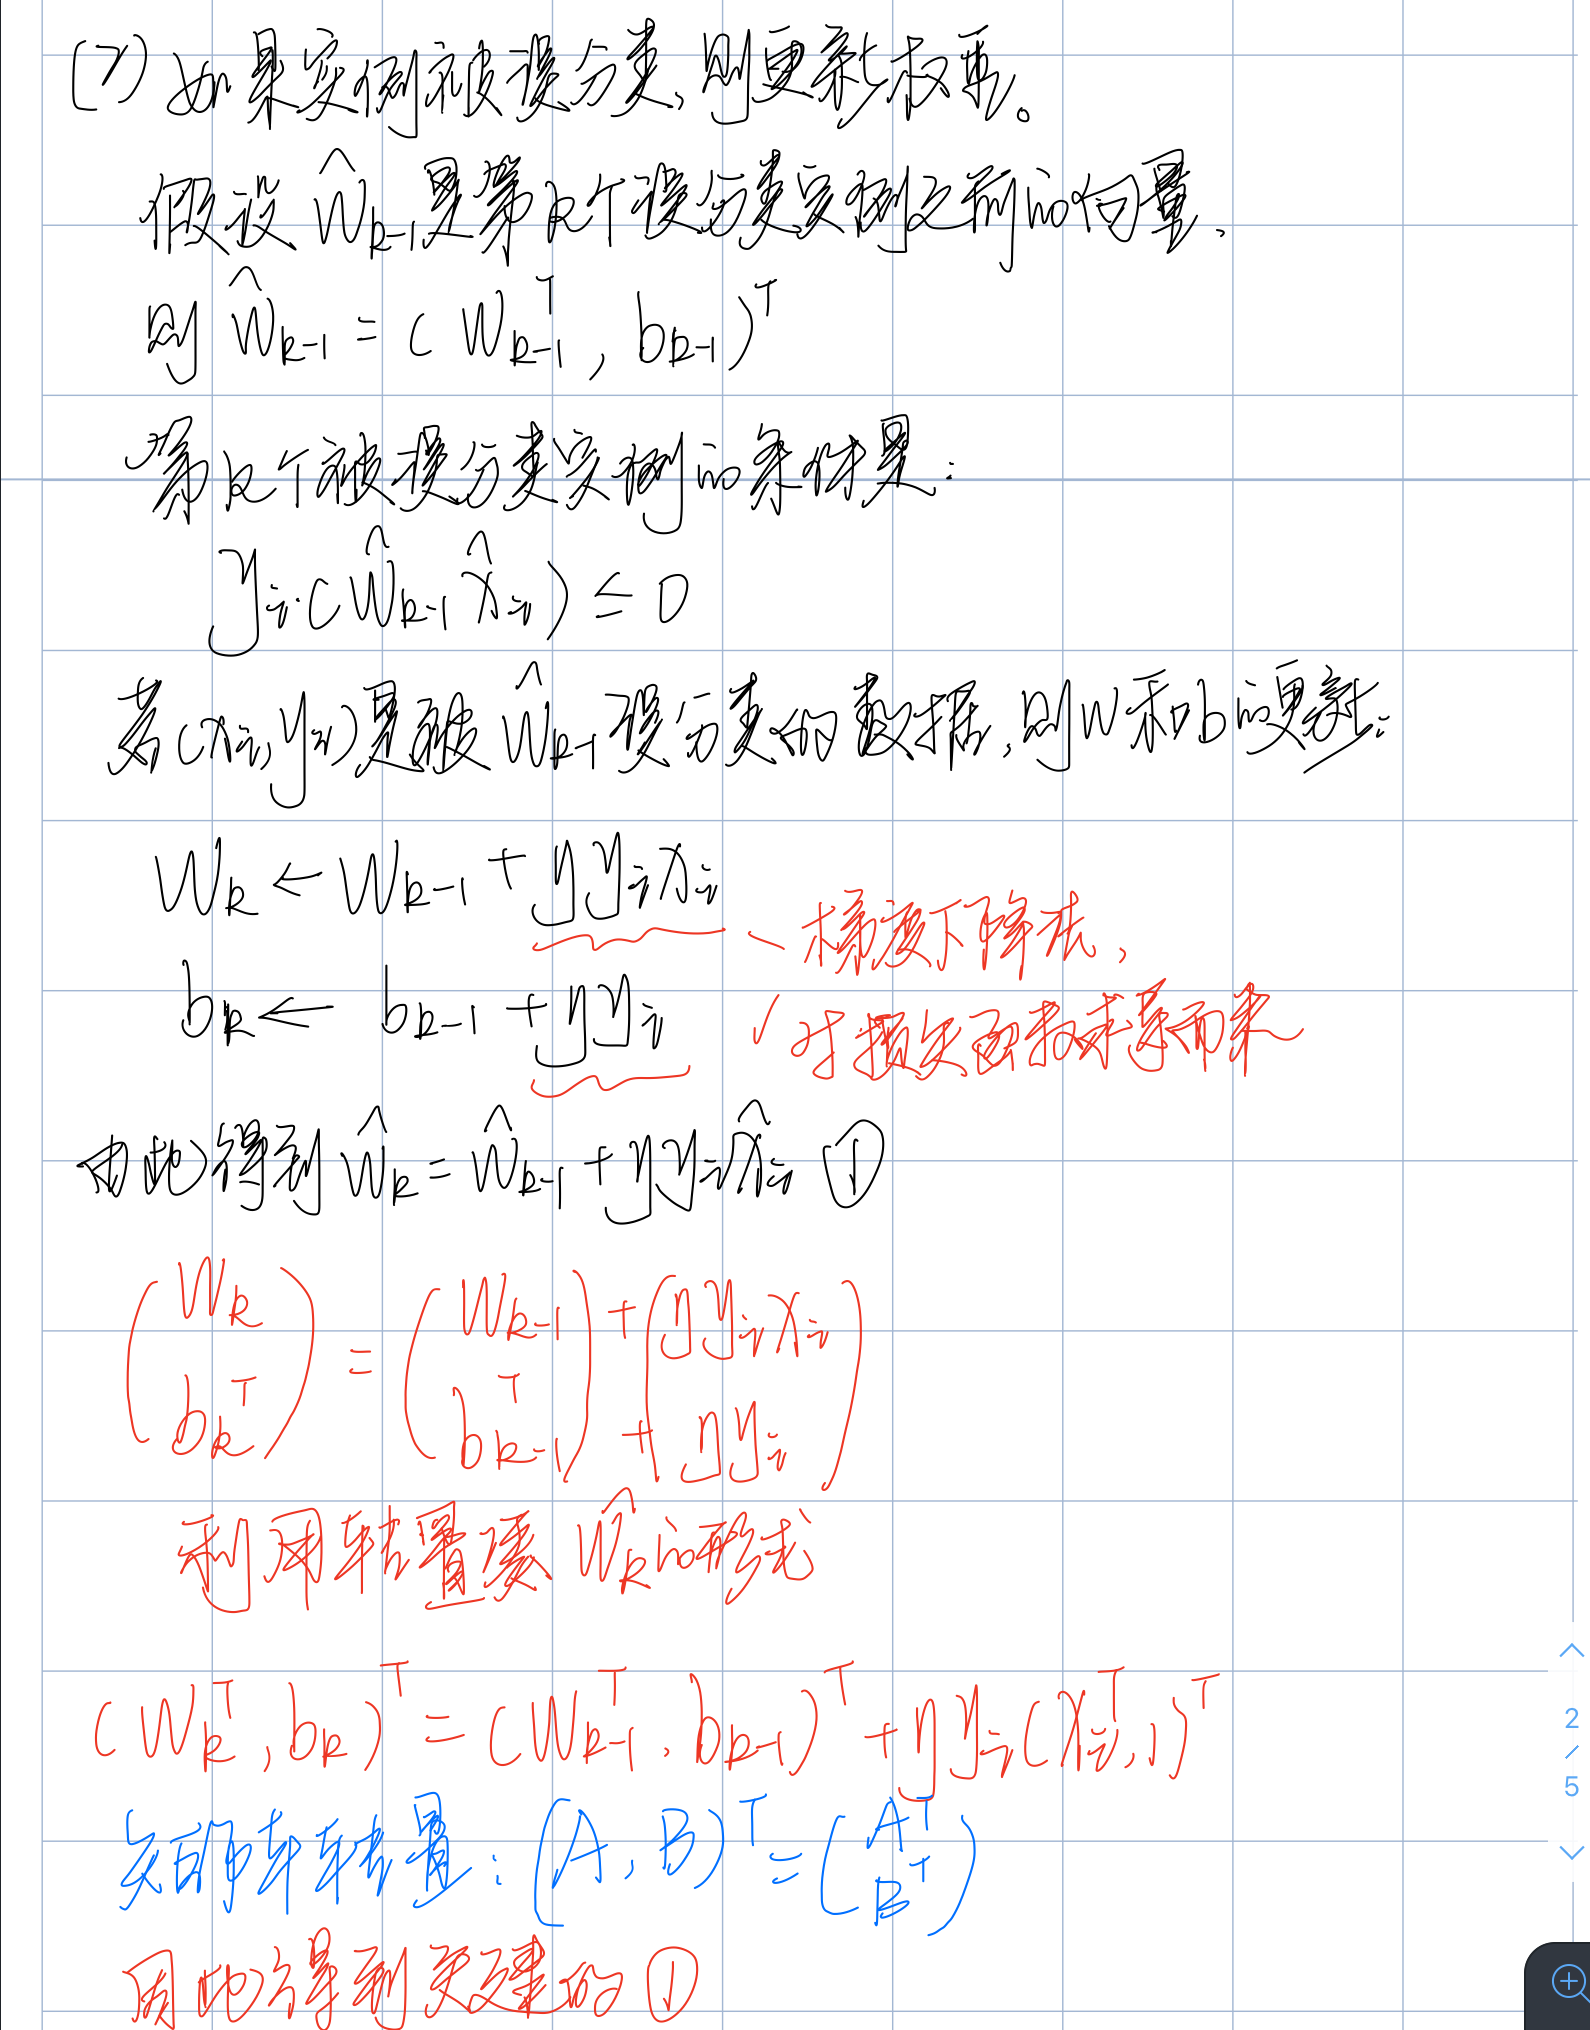 (2) 如果实例被误分类,则更新权重。
假设 ŵ_{k-1}是第k个误分类实例之前的向量,
则 ŵ_{k-1} = (w_{k-1}^T, b_{k-1})^T
第k个被误分类实例的条件是:
y_i·(ŵ_{k-1} x̂_i) ≤ 0
若(x_i,y_i)是被 ŵ_{k-1} 误分类的数据,则w和b的更新:
w_k ← w_{k-1} + ηy_i x_i
梯度下降法,
b_k ← b_{k-1} + ηy_i
对损失函数求导而来
由此得到 ŵ_k = ŵ_{k-1} + ηy_i x̂_i ①
(w_k b_k^T) = (w_{k-1} b_{k-1}^T) + + (ηy_i x_i ηy_i)
利用转置凑 ŵ_k的形式
(w_k^T, b_k)^T = (w_{k-1}^T, b_{k-1})^T + ηy_i(x_i^T, 1)^T
矩阵转置:(A, B)^T = (A^T B^T)
因此得到关键的①
2
/
5